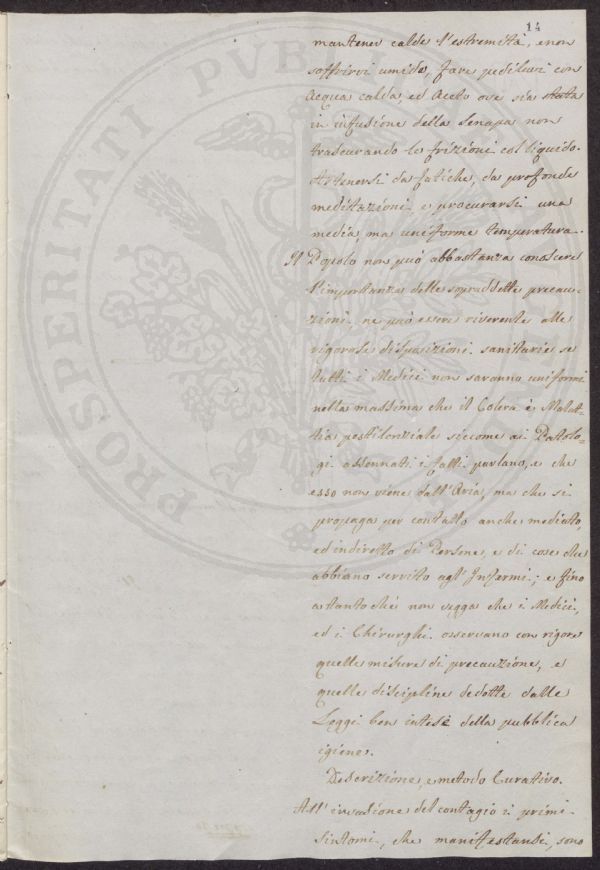 14
mantener calde l'estremità, e non
soffrirvi umido, fare pediluvi con
Acqua calda, ed Aceto ove sia stata
in infusione della Senapa non
trascurando le frizioni col liquido.
Astenersi da fatiche, da profonde
meditazioni, e procurarsi una
media, ma uniforme temperatura.
Il Popolo non può abbastanza conoscere
l'importanza delle sopraddette precau-
zioni, ne può essere riverente alle
rigorose disposizioni sanitarie se
tutti i Medici non saranno uniformi
nella massima che il Colera è Malat-
tia pestilenziale siccome ai Patolo-
gi assennati i fatti parlano, e che
esso non viene dall'Aria, ma che si
propaga per contatto anche mediato,
ed indiretto di Persone, e di cose che
abbiano servito agl'Infermi; e fino
a tanto che non vegga che i Medici,
ed i Chirurghi osservano con rigore
quelle misure di precauzione, e
quelle discipline dedotte dalle
Leggi ben intese della pubblica
igiene.
Descrizione, e metodo Curativo.
All'invasione del contagio i primi
sintomi, che manifestansi, sono
PROSPERITATI PVBLICAE